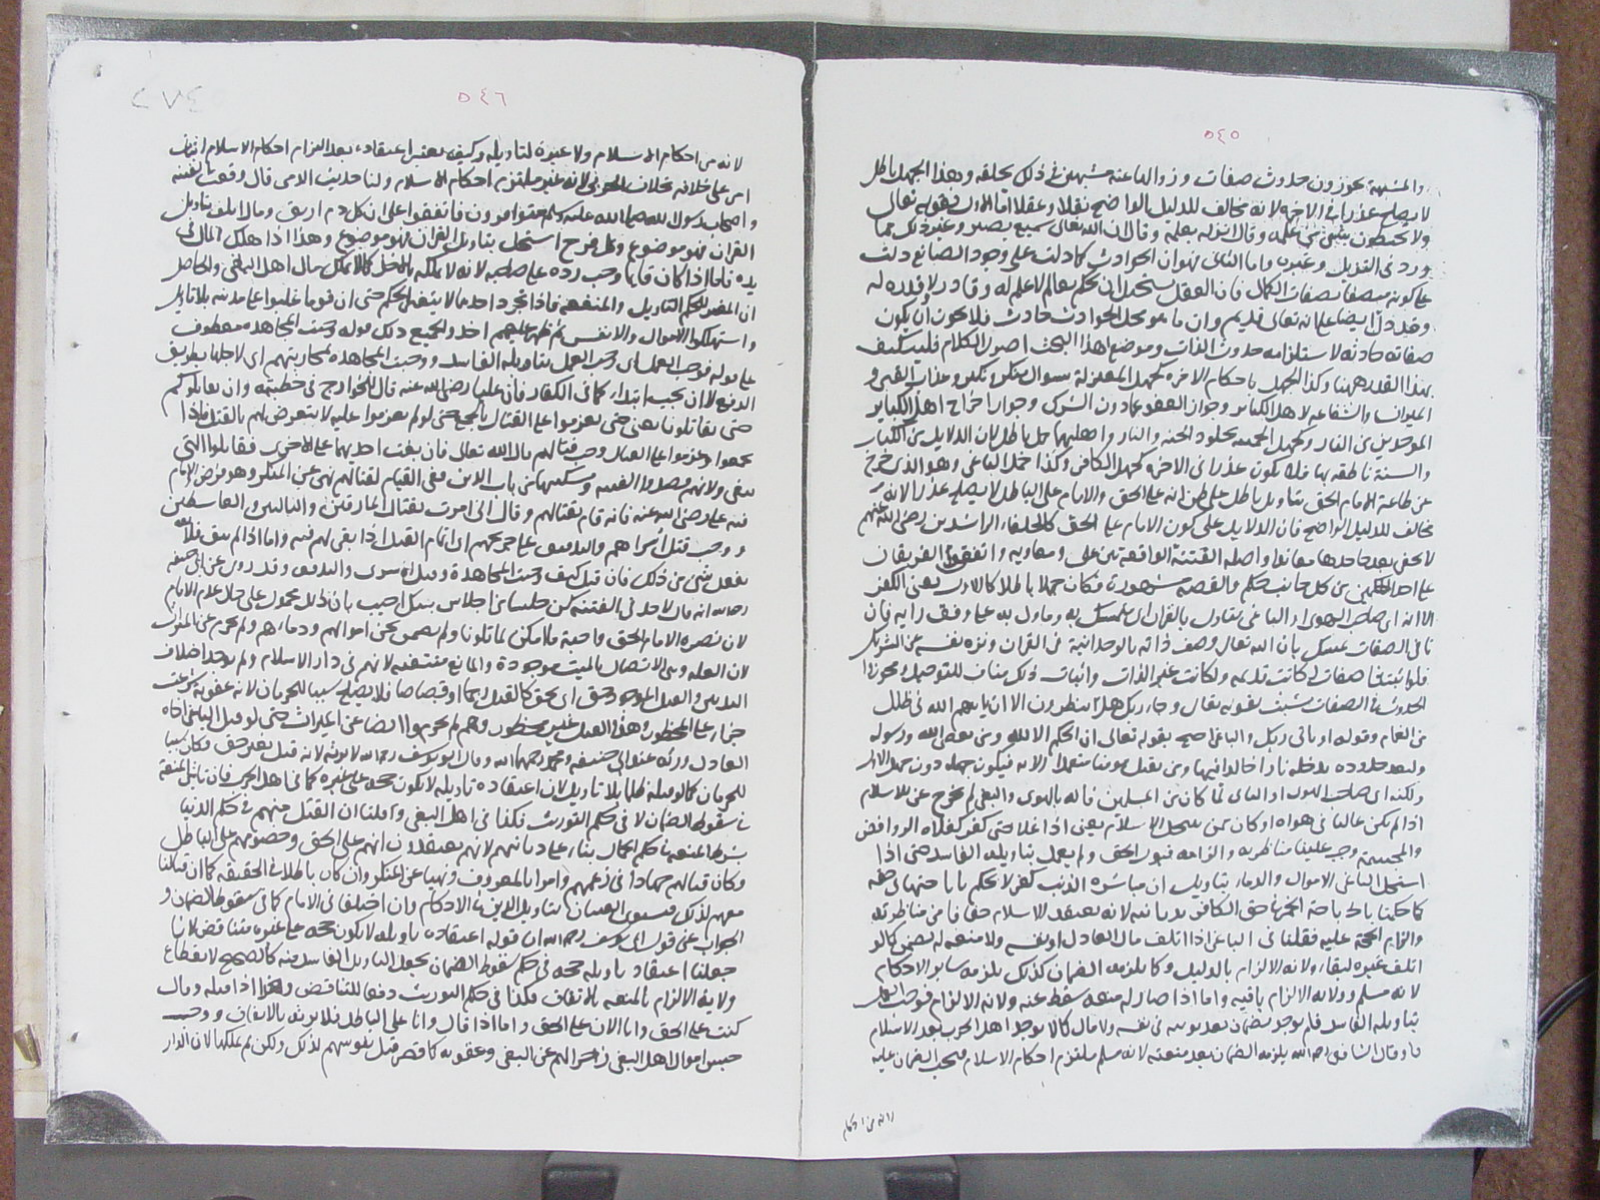 ٥٤٥
والمشبهة يجوزون حدوث صفات وزوالها عنه مشبهين في ذلك بخلقه وهذا الجهل باطل
لا يصلح عذرا في الآخرة لانه مخالف للدليل الواضح نقلا وعقلا اما الاول فقوله تعالى
ولا يحيطون بشيء من علمه وقال انزله بعلمه وقال ان الله تعالى سميع بصير وغير ذلك مما
ورد في التنزيل وغيره واما الثاني فهو ان الحوادث كما دلت على وجود الصانع دلت
على كونه متصفا بصفات الكمال فان العقل يستحيل ان يحكم بعالم لا علم له وقادر لا قدرة له
وقد دل ايضا على انه تعالى قديم وان ما هو محل الحوادث حادث فلا يجوز ان يكون
صفاته حادثة لاستلزامه حدوث الذات وموضع هذا البحث اصول الكلام فليكتف
بهذا القدر ههنا وكذا الجهل باحكام الآخرة كجهل المعتزلة بسوال منكر ونكير وعذاب القبر و
الميزان والشفاعة لاهل الكبائر وجواز العفو عما دون الشرك وجواز اخراج اهل الكبائر
الموحدين من النار وكجهل الجهمية بخلود الجنة والنار واهليهما جهل باطل لان الدلايل من الكتاب
والسنة ناطقة بها فلا يكون عذرا في الآخرة كجهل الكافر وكذا جهل الباغي وهو الذي خرج
عن طاعة الامام الحق بتاويل باطل على ظن انه على الحق والامام على الباطل لا يصلح عذرا لانه
مخالف للدليل الواضح فان الدلايل على كون الامام على الحق كالخلفاء الراشدين رضي الله عنهم
لا تخفى يعد جاحدها معاندا واصله الفتنة الواقعة بين علي ومعاوية واتفقوا الفريقان
على اخذ الحكمين من كل جانب حكم والقصة مشهورة فكان جهلا باطلا كالاول يعني الكفر
الا انه اي صاحب الهوى او الباغي متاول بالقران اي متمسك به وماول له على وفق رايه فان
نافي الصفات تمسك بان الله تعالى وصف ذاته بالوحدانية في القران ونزه نفسه عن الشريك
فلو اثبتنا صفات لكانت قديمة ولكانت غير الذات واثبات ذلك مناف للتوحيد ومجوز
الحدوث في الصفات تشبث بقوله تعالى وجاء ربك هل ينظرون الا ان ياتيهم الله في ظلل
من الغمام وقوله او ياتي ربك والباغي احتج بقوله تعالى ان الحكم الا لله ومن يعص الله ورسوله
ويتعد حدوده يدخله نارا خالدا فيها ومن يقتل مومنا متعمدا الآية فيكون جهله دون جهل الاول
ولكنه اي صاحب الهوى او الباغي لما كان من المسلمين فانه بالهوى والبغي لم يخرج عن الاسلام
اذا لم يكن غاليا في هواه او كان ممن ينتحل الاسلام يعني اذا غلا حتى كفر كغلاة الروافض
والمجسمة وجب علينا مناظرته والزامه قبول الحق ولم يعمل بتاويله الفاسد حتى اذا
استحل الباغي الاموال والدماء بتاويل ان مباشرة الذنب كفر لا يحكم باباحتها في حقه
كما حكمنا باباحة الخمر في حق الكافر بديانته لانه يعتقد الاسلام حقا فامكن مناظرته
والزام الحجة عليه فقلنا في الباغي اذا اتلف مال العادل او نفسه ولا منعة له يضمن كما لو
اتلف غيره لبقاء ولاية الالزام بالدليل وكما يلزمه الضمان كذلك يلزمه سائر الاحكام
لانه مسلم وولاية الالزام باقية واما اذا صار له منعة سقط عنه ولاية الالزام فوجب العمل
بتاويله الفاسد فلم يوخذ بضمان بعد توبته في نفس ولا مال كما لا يوخذ اهل الحرب بعد الاسلام
وقال الشافعي رحمه الله يلزمه الضمان بعد منعته لانه مسلم ملتزم احكام الاسلام فيجب الضمان عليه
لانه من احكام
٥٤٦
٢٧٤
لانه من احكام الاسلام ولا عبرة لتاويله وكيف يعتبر اعتقاده بعد التزام احكام الاسلام اتيان
امر على خلافه بخلاف الحربي لانه غير ملتزم احكام الاسلام ولنا حديث الزهري قال وقعت الفتنة
واصحاب رسول الله صلى الله عليه وسلم متوافرون فاتفقوا على ان كل دم اريق ومال اتلف بتاويل
القران فهو موضوع وكل فرج استحل بتاويل القران فهو موضوع وهذا اذا هلك المال في
يده فاما اذا كان قايما وجب رده على صاحبه لانه لا يملكه بالاخذ كما لا يملك مال اهل البغي والحاصل
ان المغير للحكم التاويل والمنعة فاذا تجرد احدهما لا يتغير الحكم حتى ان قوما غلبوا على مدينة بلا تاويل
واستهلكوا الاموال والانفس ثم ظهر عليهم اخذوا بجميع ذلك قوله وجبت المجاهدة معطوف
على قوله فوجب العمل اي وجب العمل بتاويله الفاسد ووجبت المجاهدة محاربتهم اي لاجلها بطريق
الدفع لا ان يجب ابتداء كما في الكفار فان عليا رضي الله عنه قال للخوارج في خطبته ولن نقاتلكم
حتى تقاتلونا يعني حتى تعزموا على القتال بالتجمع حتى لو لم يعزموا عليه لا يتعرض لهم بالقتل فاذا
تجمعوا وعزموا على القتال وجب قتالهم قال الله تعالى فان بغت احديهما على الاخرى فقاتلوا التي
تبغي ولانهم قصدوا الفتنة وتسكينها من باب الدين ففي القيام لقتالهم نهي عن المنكر وهو فرض الامام
فيه علي رضي الله عنه فانه قام بقتالهم وقال اني امرت بقتال المارقين والناكثين والقاسطين
ووجب قتل اسراهم والتدفيف على جريحهم اي اتمام القتل اذا بقي لهم فئة واما اذا لم يبق فلا
يفعل شيء من ذلك فان قيل كيف وجبت المجاهدة وقتل الاسرى والتدفيف وقد روي عن ابي حنيفة
رحمه الله انه قال لاحد في الفتنة كن حلسا من احلاس بيتك اجيب بان ذلك محمول على حال عدم الامام
لان نصرة الامام الحق واجبة ما امكن لما تلونا ولم نضمن نحن اموالهم ودماءهم ولم نحرم عن الميراث
لان العلة وهي الاتصال بالميت موجودة والمانع منتف لانهم في دار الاسلام ولم يوجد اختلاف
الدينين والقتل الموجود بحق اي بحق كالقتل رجما او قصاصا فلا يصلح سببا للحرمان لانه عقوبة شرعت
جزاء على المحظور وهذا القتل غير محظور وهم لم يحرموا ايضا عن الميراث حتى لو قتل الباغي اخاه
العادل ورثه عند ابي حنيفة ومحمد رحمهما الله وقال ابو يوسف رحمه الله لا يرثه لانه قتل بغير حق فكان سببا
للحرمان كما لو قتله ظلما بلا تاويل لان اعتقاده تاويله لا يكون حجة على غيره كما في اهل الحرب فان تاثير المنعة
في سقوط الضمان لا في حكم التوريث فكذا في اهل البغي وقلنا ان القتل منهم في حكم الدنيا
بشرط المنعة في حكم الجهاد بناء على ديانتهم لانهم يعتقدون انهم على الحق وخصومهم على الباطل
وكان قتالهم جهادا في زعمهم وامرا بالمعروف ونهيا عن المنكر وان كان باطلا في الحقيقة كما ان قتالنا
معهم لذلك فيستوي القتلان لتاويل الدين في الاحكام وان اختلفا في الآثام كما في سقوط الضمان و
الجواب عن قول ابي يوسف رحمه الله ان قوله اعتقاده تاويله لا يكون حجة على غيره متناقض لانا
جعلنا اعتقاد تاويله حجة في حكم سقوط الضمان بجعل التاويل الفاسد منه كالصحيح لانقطاع
ولاية الالزام بالمنعة بالاتفاق فكذا في حكم التوريث دفعا للتناقض وهذا اذا قتله وقال
كنت على الحق وانا الان على الحق واما اذا قال وانا على الباطل فلا يرثه بالاتفاق ووجب
حبس اموال اهل البغي زجرا لهم عن البغي وعقوبة كما قصر قتل نفوسهم لذلك ولكن لم نملكها لان الدار